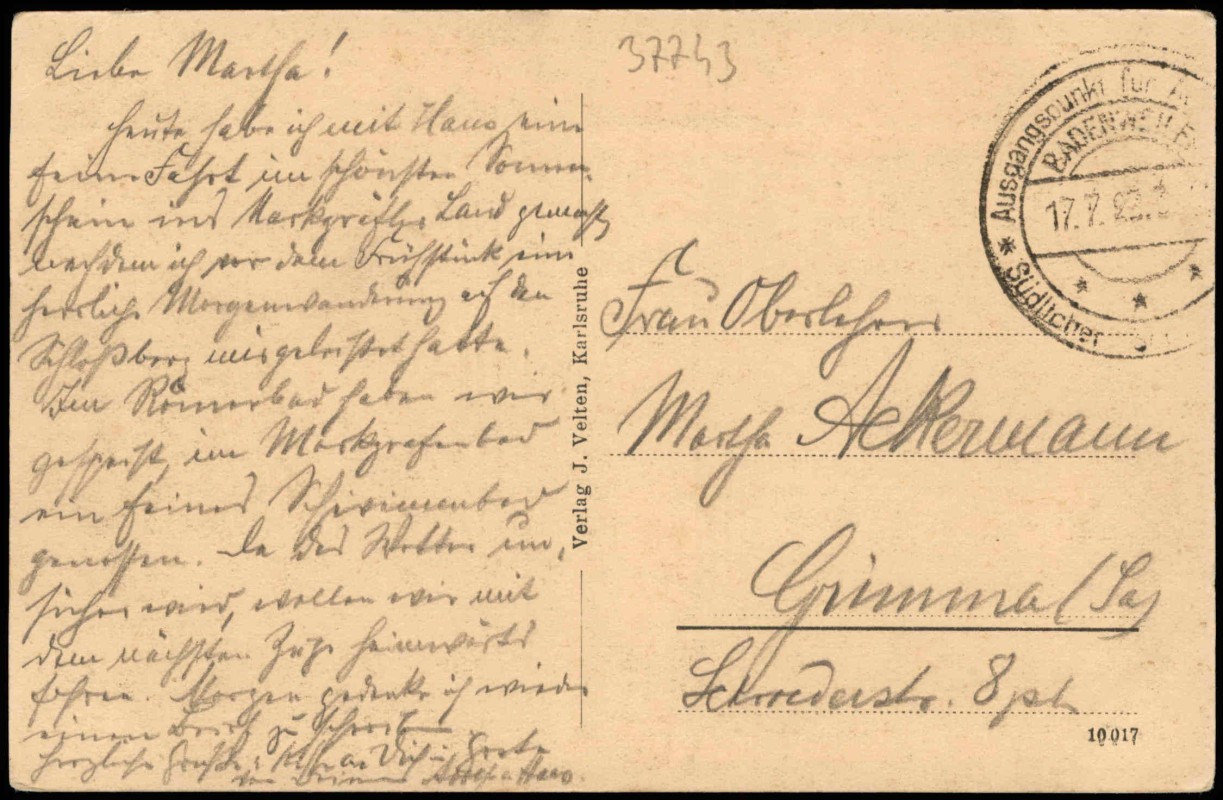 37743
Liebe Martha!
Heute habe ich mit Hans eine
feine Fahrt im schönsten Sonnen-
schein ins Markgräfler Land gemacht,
nachdem ich vor dem Frühstück eine
herrliche Morgenwanderung auf den
Schloßberg ausgeleistet hatte.
Im Römerbad haben wir
gespeist, im Markgrafenbad
ein feines Schwimmbad
genossen. Da das Wetter un-
sicher wird, wollen wir mit
dem nächsten Zuge heimwärts
fahren. Morgen gedenke ich wieder
einen Brief zu schreiben.
Herzliche Grüße Dich Grete
Adolf u Hans.
Verlag J. Velten, Karlsruhe
* Ausgangspunkt für
BADENWEILER
17.7.
* * *
Südlicher
Frau Oberlehrer
Martha Ackermann
Grimma (Sa)
Schroederstr. 8 pt
10017